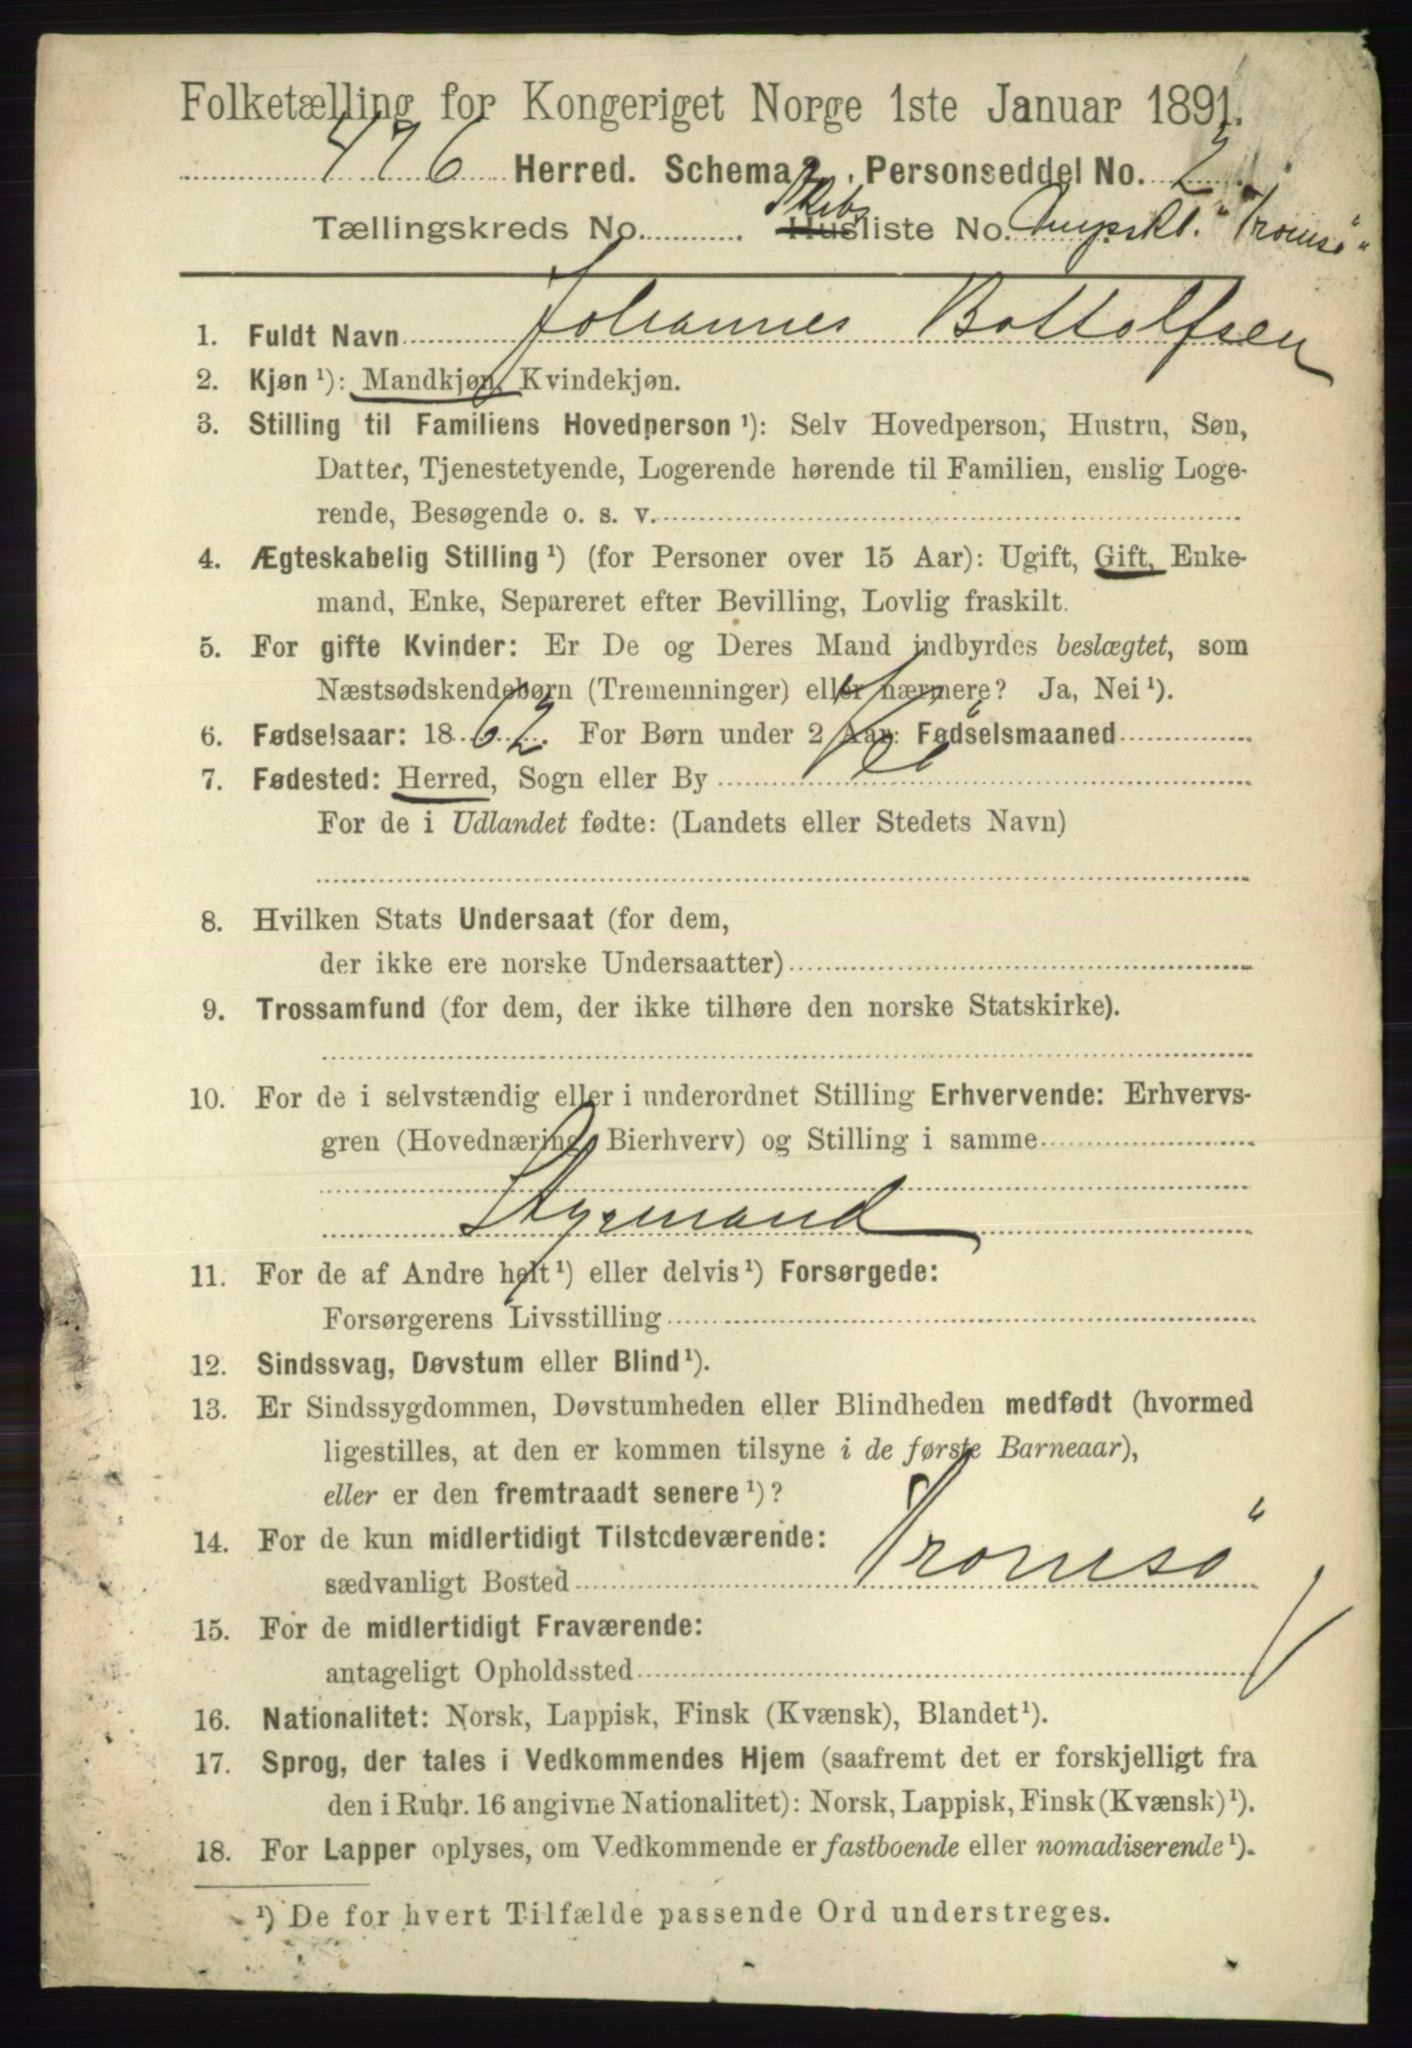 Folketælling for Kongeriget Norge 1ste Januar 1891.
476 Herred. Schema 2. Personseddel No. 2
Tællingskreds No. Skibs Husliste No. "Tromsø"
1. Fuldt Navn Johannes Bottolfsen
2. Kjøn ¹): Mandkjøn, Kvindekjøn.
3. Stilling til Familiens Hovedperson ¹): Selv Hovedperson, Hustru, Søn,
Datter, Tjenestetyende, Logerende hørende til Familien, enslig Loge-
rende, Besøgende o. s. v.
4. Ægteskabelig Stilling ¹) (for Personer over 15 Aar): Ugift, Gift, Enke-
mand, Enke, Separeret efter Bevilling, Lovlig fraskilt.
5. For gifte Kvinder: Er De og Deres Mand indbyrdes beslægtet, som
Næstsødskendebørn (Tremenninger) eller nærmere? Ja, Nei ¹).
6. Fødselsaar: 1862. For Børn under 2 Aar: Fødselsmaaned
7. Fødested: Herred, Sogn eller By
For de i Udlandet fødte: (Landets eller Stedets Navn)
8. Hvilken Stats Undersaat (for dem,
der ikke ere norske Undersaatter)
9. Trossamfund (for dem, der ikke tilhøre den norske Statskirke).
10. For de i selvstændig eller i underordnet Stilling Erhvervende: Erhvervs-
gren (Hovednæring, Bierhverv) og Stilling i samme
Styrmand
11. For de af Andre helt ¹) eller delvis ¹) Forsørgede:
Forsørgerens Livsstilling
12. Sindssvag, Døvstum eller Blind ¹).
13. Er Sindssygdommen, Døvstumheden eller Blindheden medfødt (hvormed
ligestilles, at den er kommen tilsyne i de første Barneaar),
eller er den fremtraadt senere ¹)?
14. For de kun midlertidigt Tilstedeværende:
sædvanligt Bosted Tromsø
15. For de midlertidigt Fraværende:
antageligt Opholdssted
16. Nationalitet: Norsk, Lappisk, Finsk (Kvænsk), Blandet ¹).
17. Sprog, der tales i Vedkommendes Hjem (saafremt det er forskjelligt fra
den i Rubr. 16 angivne Nationalitet): Norsk, Lappisk, Finsk (Kvænsk) ¹).
18. For Lapper oplyses, om Vedkommende er fastboende eller nomadiserende ¹).
¹) De for hvert Tilfælde passende Ord understreges.